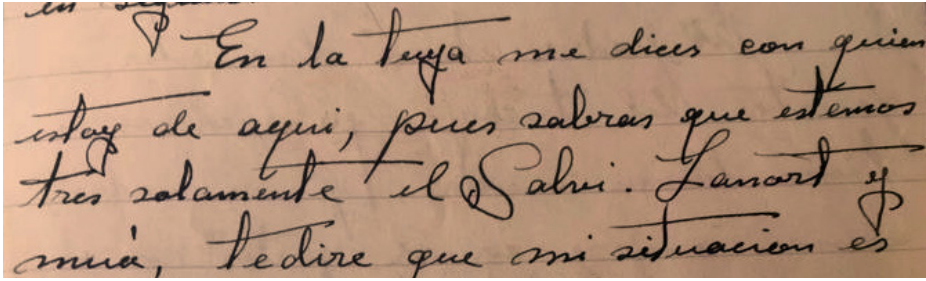 En la tuya me dices con quien
estoy de aqui, pues sabras que estemos
tres solamente el Salvi. Lanart y
muá, te dire que mi situacion es